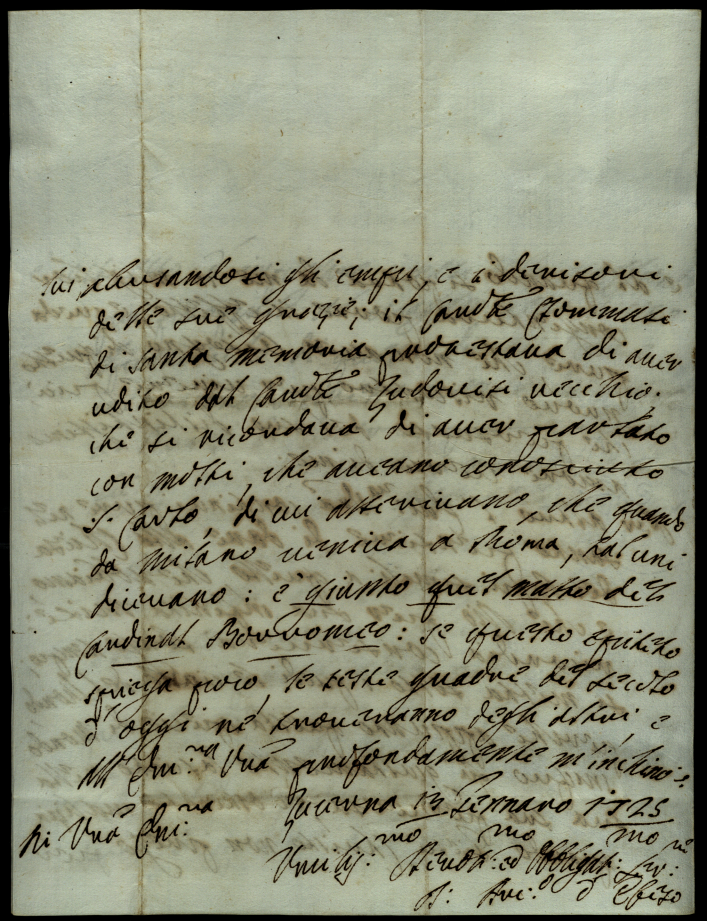 lui, chiusandosi gli empii, e i derisori
delle sue grazie; il Card.le Tommasi
di santa memoria protestava di aver
udito dal Card.le Ludovisi vecchio
che si ricordava di aver parlato
con molti, che aveano conosciuto
S. Carlo, di cui asserivano, che quando
da Milano veniva a Roma, taluni
dicevano: è giunto quel matto del
Cardinal Borromeo: se questo epiteto
spiega poco, le teste quadre del secolo
d'oggi ne troveranno degli altri e
all' Em.za Vra profondamente m'inchino:
Lucerna 13 Gennaro 1725
Di Vra Em.za
Umiliss:mo Devot:mo ed Obbligat:mo Ser:re
D: Arc:o d'Efeso